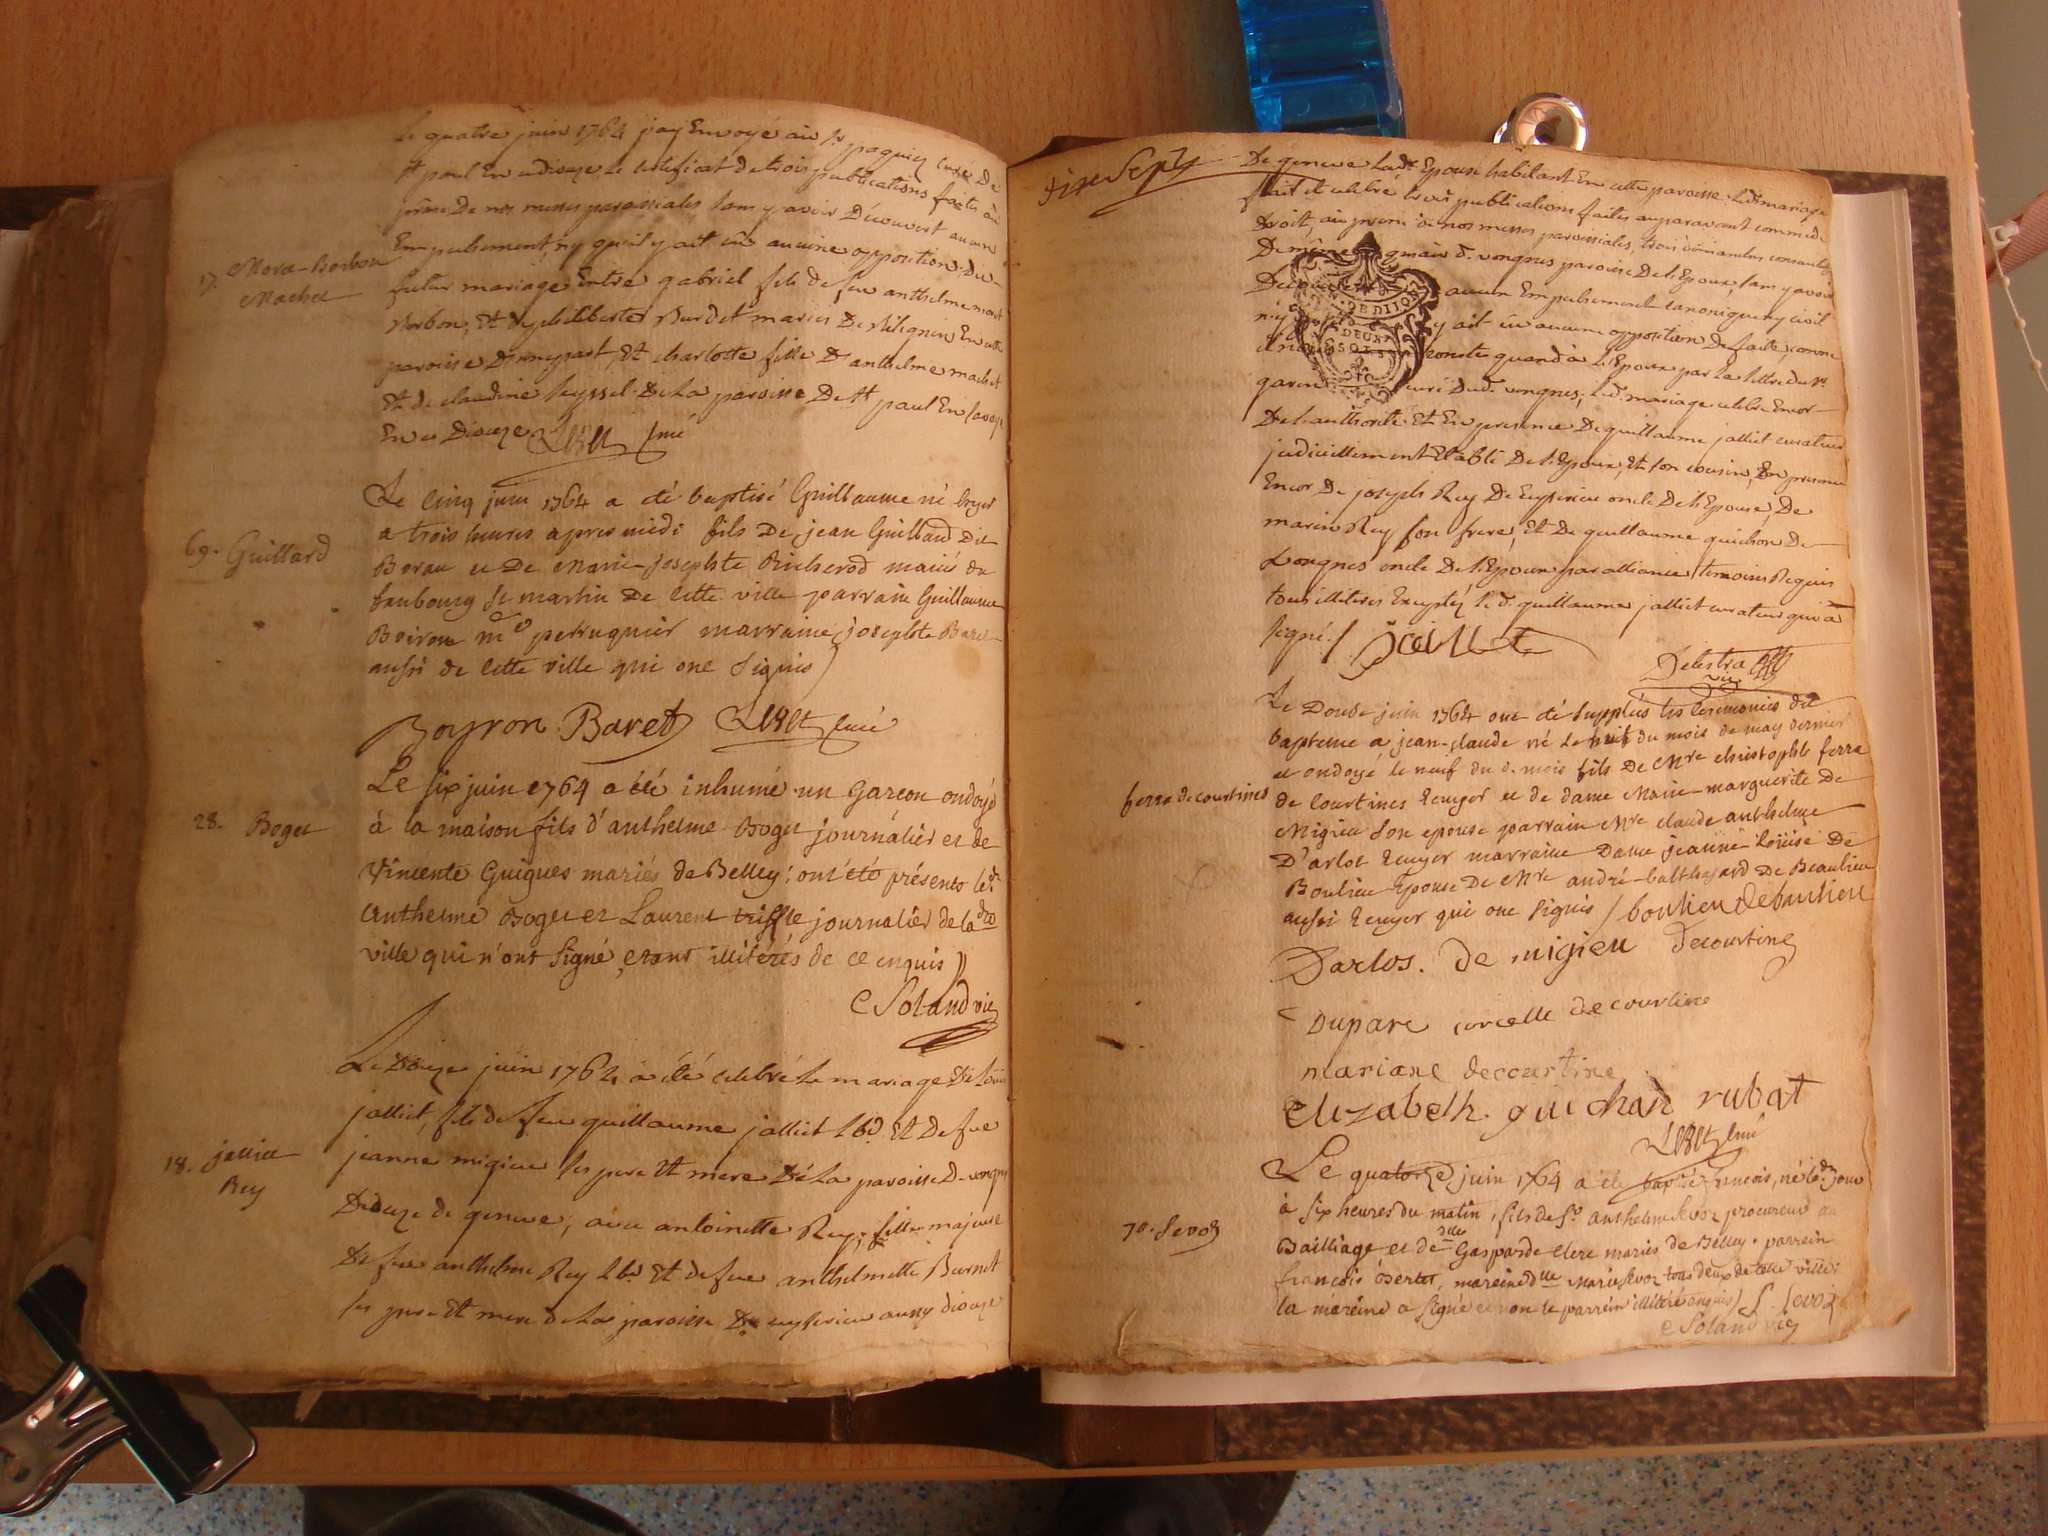 Le quatre juin 1764 j'ay Envoyé au Sr paquiez curé De
St paul En ce diocese le certificat de trois publications faites au
prône De nos messes paroissiales sans y avoir Découvert aucun
Empechement, ny qu'il y ait eû aucune opposition, du
17. Mora-Borbon
Machet
futur mariage Entre gabriel fils de feu anthelme morat
Borbon, Et de philiberte Burdet mariés De En cette
paroisse D'une part, Et charlotte fille D'anthelme machet
Et de claudine seyssel De La paroisse De St paul En savoye
En ce Diocese curé
Le cinq juin 1764 a été baptisé Guillaume né hyer
a trois heures apres midi fils De jean Guillard Dit
69. Guillard
Boran et De Marie-josephte Richerod mariés du
fauxbourg St martin De cette ville parrain Guillaume
Boiron me perruquier marraine josephte Baret
aussi de cette ville qui ont signés
Boyron Baret curé
Le six juin 1764 a été inhumé un garçon ondoyé
28. Boget
à la maison fils d'anthelme Boget journalier et de
Vincente Guigues mariés de Belley; ont été présents led.
Anthelme Boget et Laurent triffle journalier de lad.
ville qui n'ont signé, etant illitérés de ce enquis
Soland vic
Le Douze juin 1764 a été celebré Le mariage De Loüis
jalliet, fils de feu guillaume jalliet Lbd Et De feue
18. jalliet
Rey
jeanne migieu ses pere Et mere De La paroisse De vongnes
Diocese de geneve; avec antoinette Rey, fille majeure
De feu anthelme Rey Lbd Et de feue anthelmette Burnet
ses pere Et mere de La paroisse De ceyserieu aussy diocese
De geneve Ladte Epouse habitant En cette paroisse. Led. mariage
fait et celebré trois publications faites auparavant comme de
Droit, au prone de nos messes paroissiales, trois dimanches consecutifs
De même qu'au d. vongnes paroisse De L'Epoux, sans y avoir
aucun Empechement canonique ny civil
y ait eû aucune opposition De faite, comme
conste quand à L'Epoux par La lettre du Sr
garin curé Dud. vongnes, Led. mariage celebré Encor
De L'authorité Et En presence De guillaume jalliet curateur
judiciellement Etabli De L'Epoux, Et son cousin, En presence
Encor De joseph Rey De Ceyserieu oncle De L'Epouse, De
marin Rey son frere, Et De guillaume guichon De
Vongnes oncle De L'Epoux par alliance temoins Requis
tous illiterés Exceptéz le d. guillaume jalliet curateur qui a
signé. / jailliet
Delestra vic
Le Douze juin 1764 ont été suppléés les ceremonies du
bapteme a jean-claude né le huit du mois de may dernier
et ondoyé le neuf du d. mois fils De Mre christophle ferra
ferra de courtines
de Courtines Ecuyer et de dame Marie-marguerite De
Migieu son epouse parrain Mre claude anthelme
D'arlot Ecuyer marraine Dame jeanne Loüise De
Boulieu Epouse De Mre andré-balthazard De Beaulieu
aussi Ecuyer qui ont signés / boulieu debeaulieu
Darlos. de migieu decourtine
Duparc corcelle de courtine
mariane decourtine
Elizabeth guichad rubat
curé
Le quatorze juin 1764 a été baptisé francois, né led. jour
à six heures du matin, fils de Sr anthelme Sevoz procureur au
70. Sevoz
Bailliage et de dlle Gasparde Clerc mariés de Belley. parrein
francois mareine dlle Marie Sevoz tous deux de cette ville:
la mareine a signé et non le parrein illitéré enquis / Sevoz
Soland vic